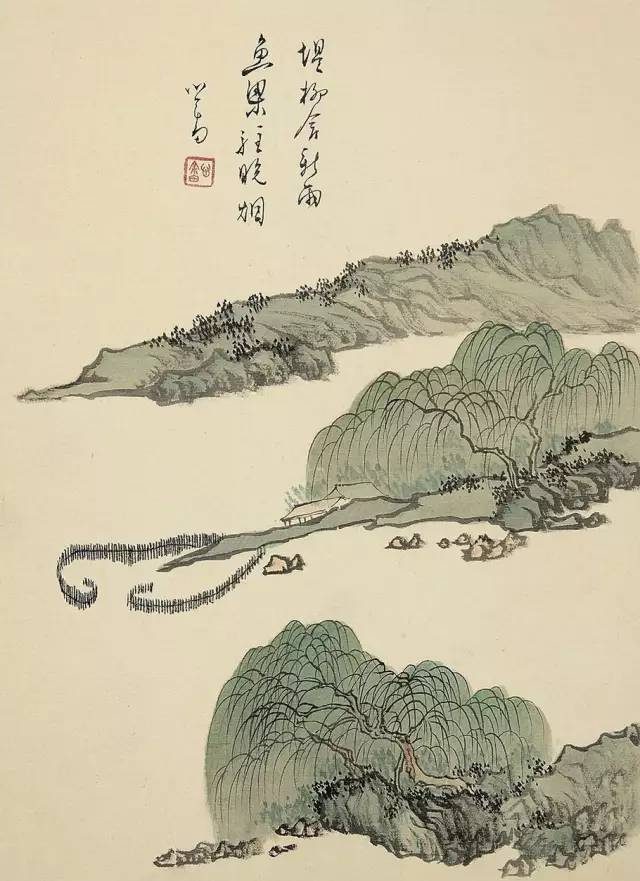 堤柳含新雨
鱼梁驻晚烟
心畬